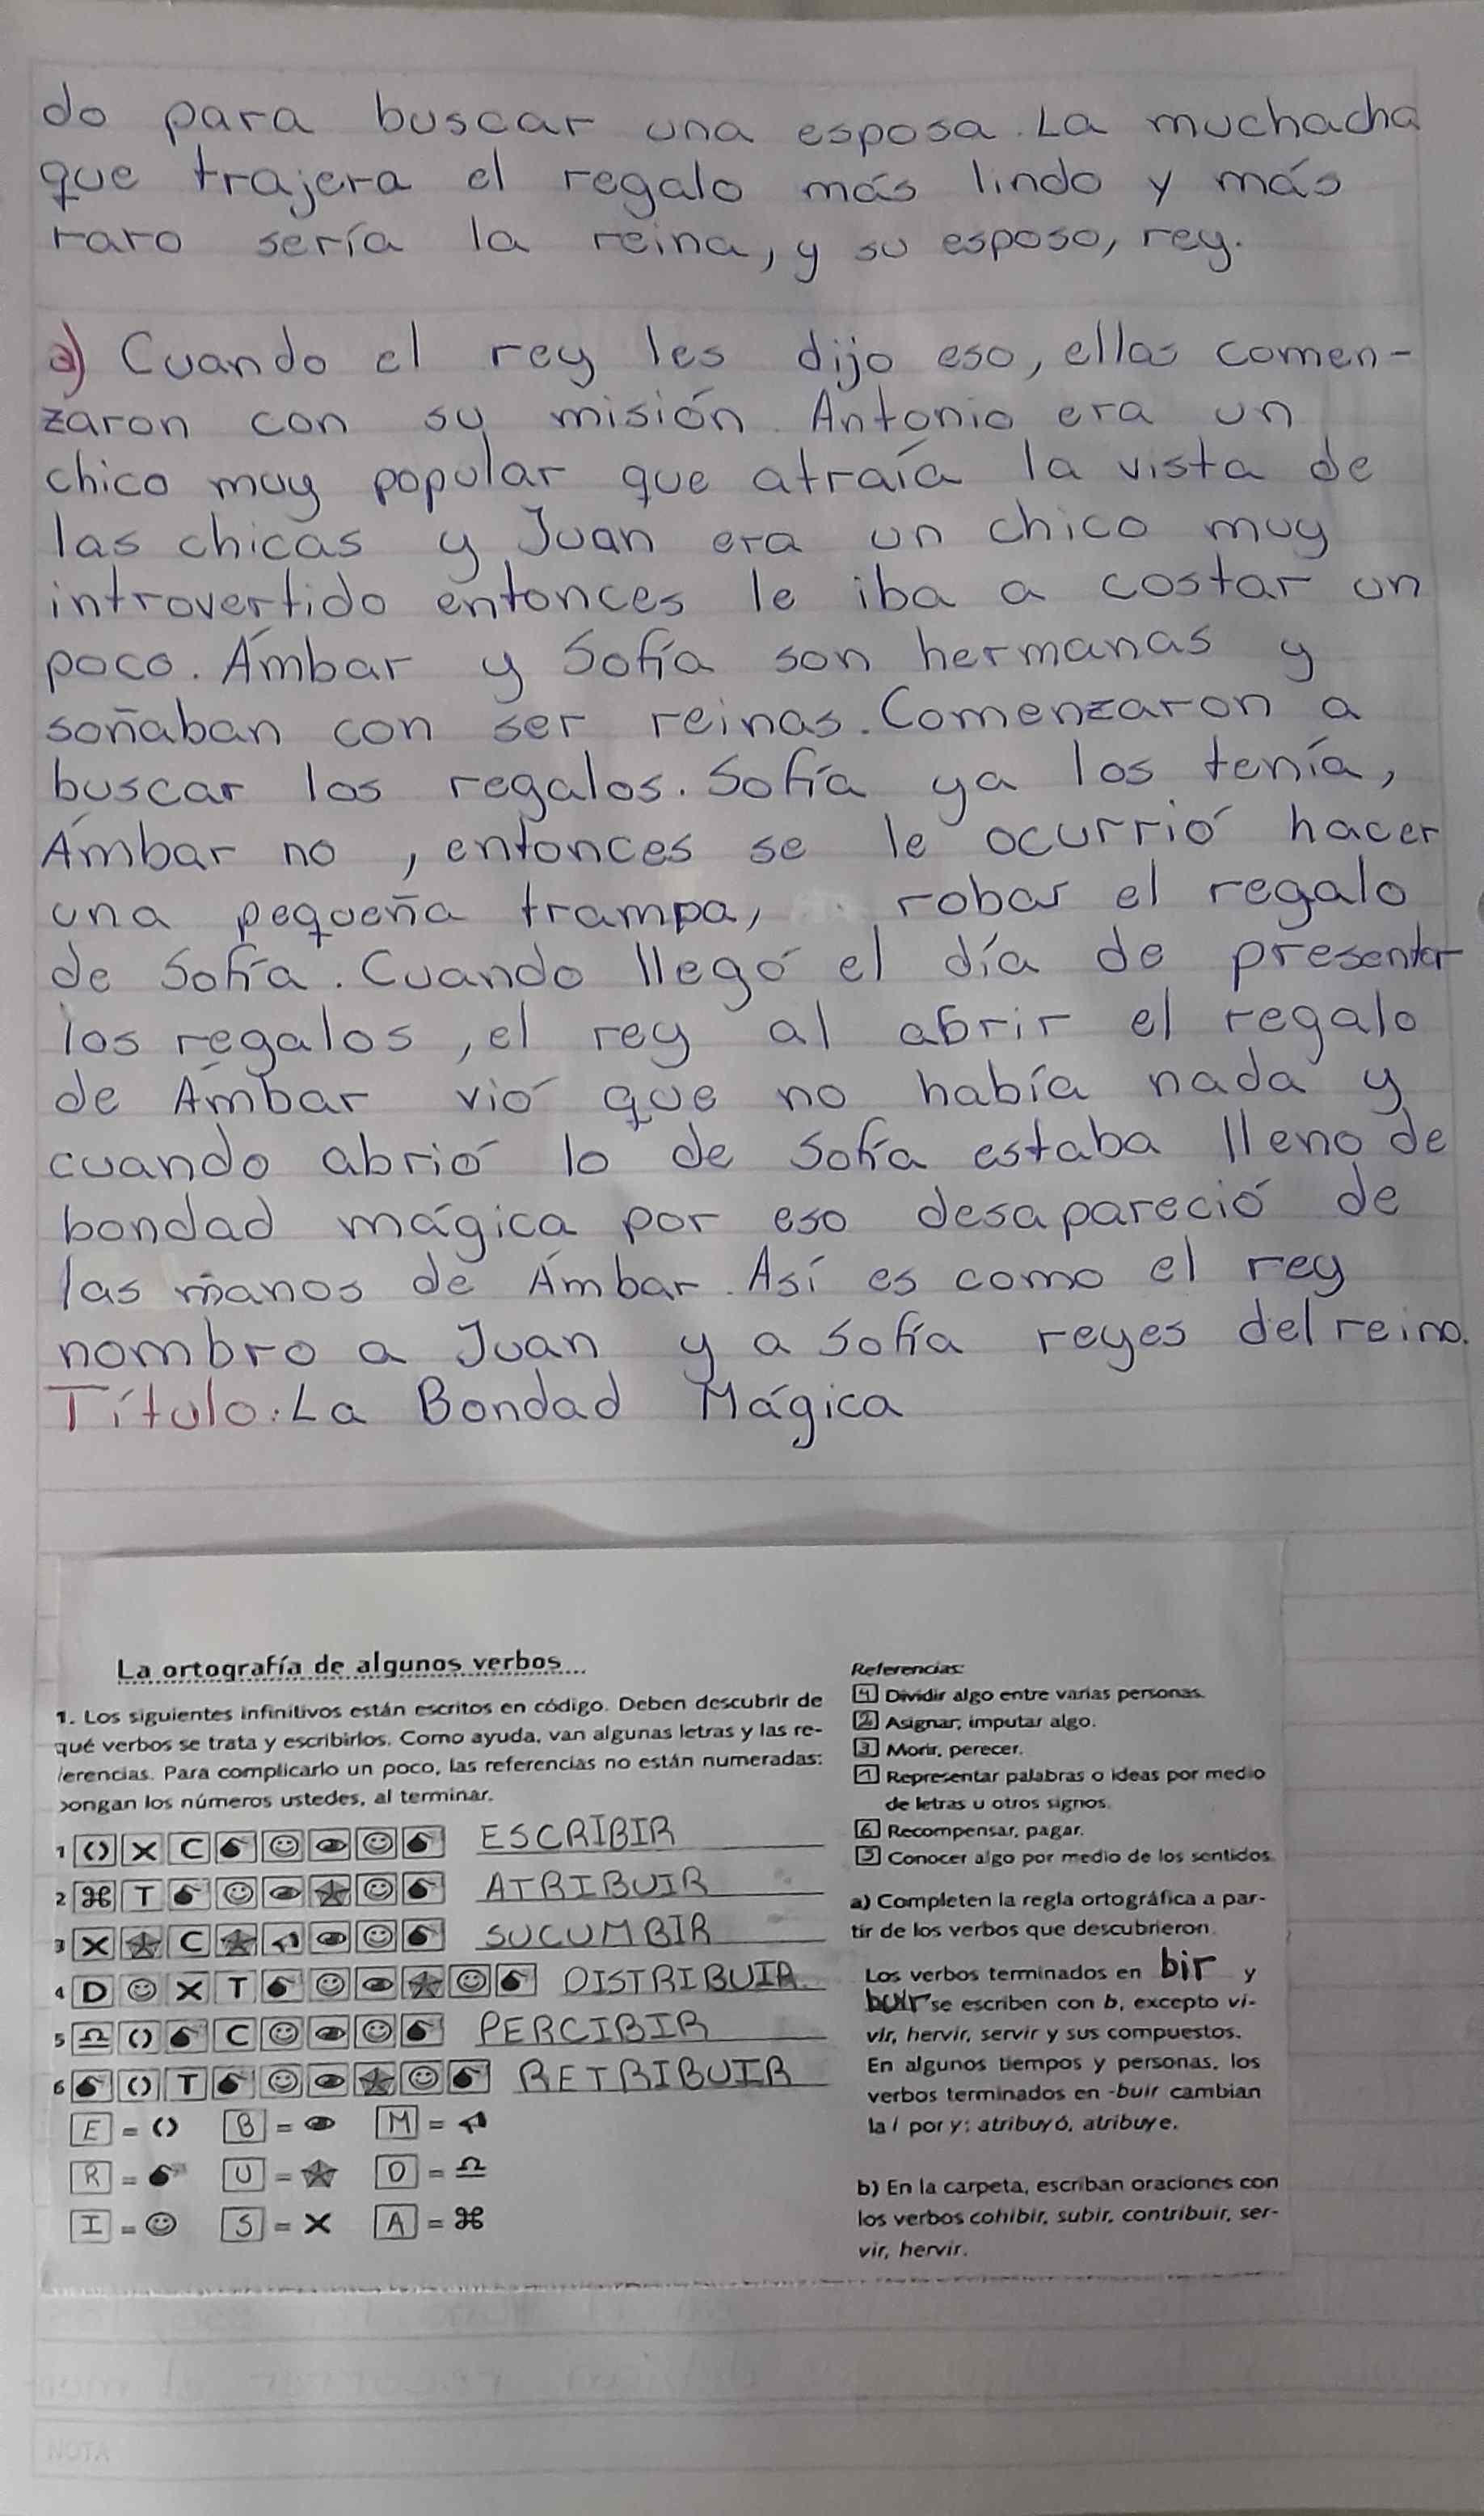 do para buscar una esposa. La muchacha
que trajera el regalo más lindo y más
raro sería la reina, y su esposo, rey.
a) Cuando el rey les dijo eso, ellas comen-
zaron con su misión. Antonio era un
chico muy popular que atraía la vista de
las chicas y Juan era un chico muy
introvertido entonces le iba a costar un
poco. Ámbar y Sofía son hermanas y
soñaban con ser reinas. Comenzaron a
buscar los regalos. Sofía ya los tenía,
Ámbar no, entonces se le ocurrió hacer
una pequeña trampa, robar el regalo
de Sofía. Cuando llegó el día de presentar
los regalos, el rey al abrir el regalo
de Ámbar vió que no había nada y
cuando abrió lo de Sofía estaba lleno de
bondad mágica por eso desapareció de
las manos de Ámbar. Así es como el rey
nombro a Juan y a Sofía reyes del reino.
Título: La Bondad Mágica
La ortografía de algunos verbos...
1. Los siguientes infinitivos están escritos en código. Deben descubrir de
qué verbos se trata y escribirlos. Como ayuda, van algunas letras y las re-
ferencias. Para complicarlo un poco, las referencias no están numeradas:
pongan los números ustedes, al terminar.
1 C ESCRIBIR
2 T ATRIBUIR
3 C SUCUMBIR
4 D T DISTRIBUIR.
5 C PERCIBIR
6 T RETRIBUIR
E = B = M =
R = U = O =
I = S = A =
Referencias:
4 Dividir algo entre varias personas.
2 Asignar, imputar algo.
3 Morir, perecer.
1 Representar palabras o ideas por medio
de letras u otros signos.
6 Recompensar, pagar.
5 Conocer algo por medio de los sentidos.
a) Completen la regla ortográfica a par-
tir de los verbos que descubrieron.
Los verbos terminados en bir y
buir se escriben con b, excepto vi-
vir, hervir, servir y sus compuestos.
En algunos tiempos y personas, los
verbos terminados en -buir cambian
la i por y: atribuyó, atribuye.
b) En la carpeta, escriban oraciones con
los verbos cohibir, subir, contribuir, ser-
vir, hervir.
NOTA